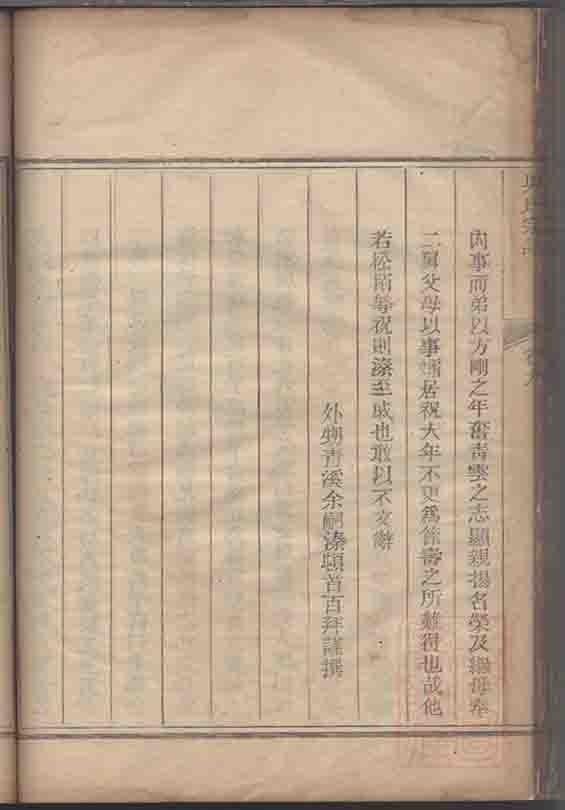 內事而弟以方剛之年奮青雲之志顯親揚名榮及繼母奉
二舅父母以事孀居祝大年不更爲爲壽之所難得也哉他
若松喬等祝則溱至戚也敢以不文辭
外甥青溪余嗣溱頓首百拜謹撰
吳氏宗